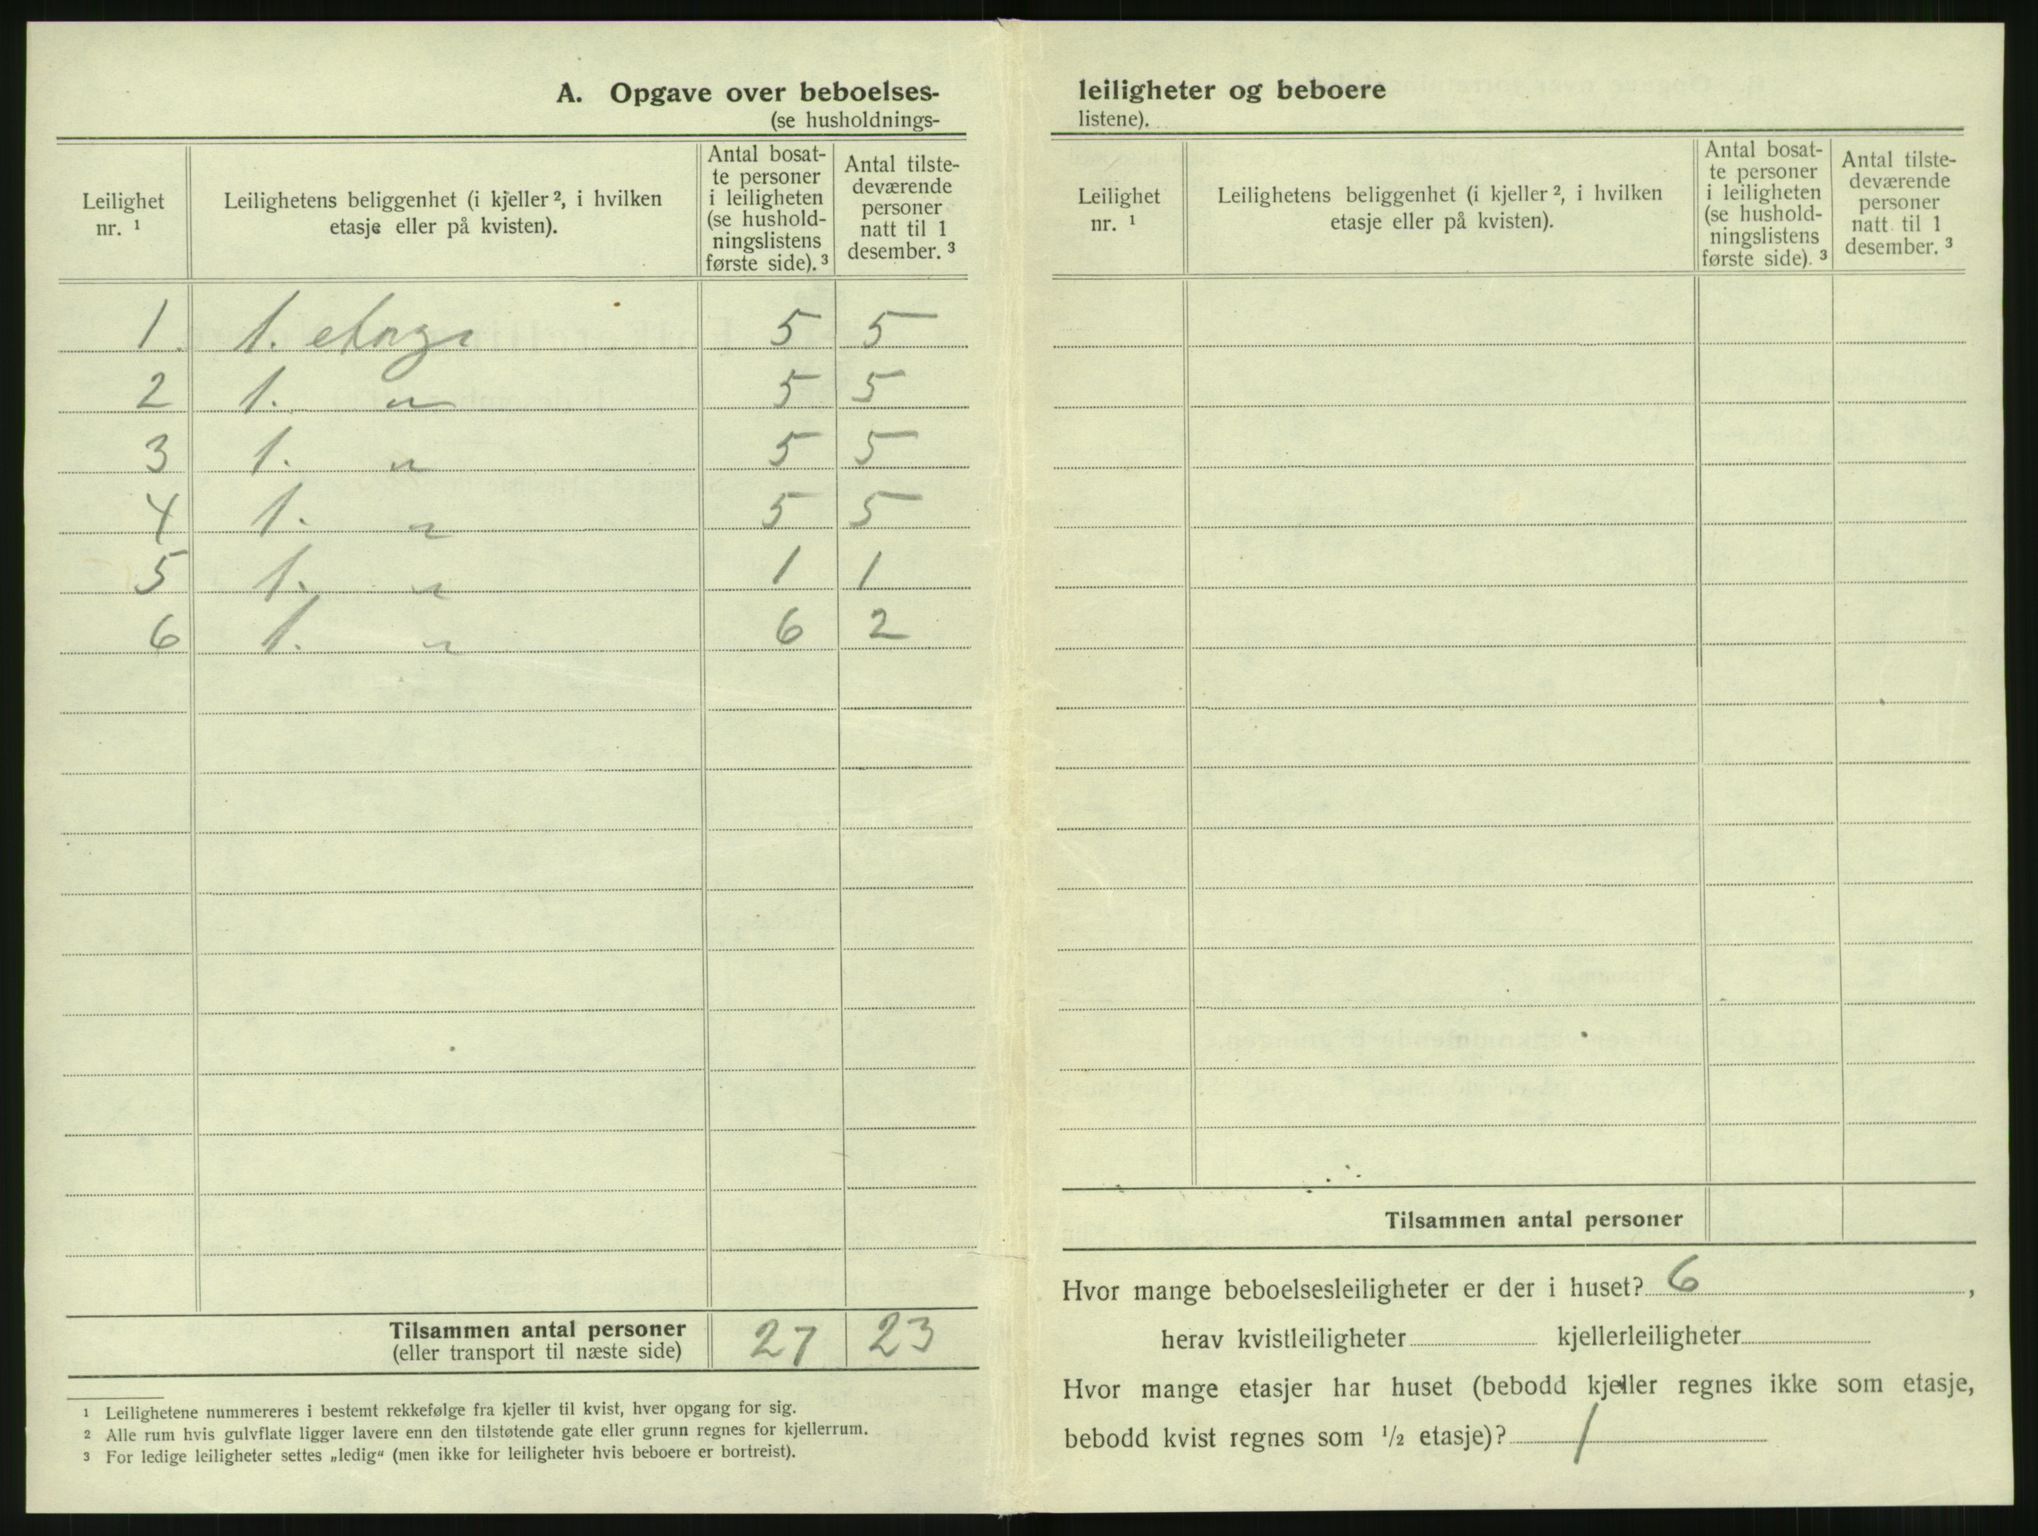 A. Opgave over beboelses-
(se husholdnings-
Leilighet nr. ¹ | Leilighetens beliggenhet (i kjeller ², i hvilken etasje eller på kvisten). | Antal bosatte personer i leiligheten (se husholdningslistens første side). ³ | Antal tilstedeværende personer natt til 1 desember. ³
1 | 1. etage | 5 | 5
2 | 1. " | 5 | 5
3 | 1. " | 5 | 5
4 | 1. " | 5 | 5
5 | 1. " | 1 | 1
6 | 1. " | 6 | 2
Tilsammen antal personer | 27 | 23
(eller transport til næste side)
¹ Leilighetene nummereres i bestemt rekkefølge fra kjeller til kvist, hver opgang for sig.
² Alle rum hvis gulvflate ligger lavere enn den tilstøtende gate eller grunn regnes for kjellerrum.
³ For ledige leiligheter settes „ledig“ (men ikke for leiligheter hvis beboere er bortreist).
leiligheter og beboere
listene).
Leilighet nr. ¹ | Leilighetens beliggenhet (i kjeller ², i hvilken etasje eller på kvisten). | Antal bosatte personer i leiligheten (se husholdningslistens første side). ³ | Antal tilstedeværende personer natt til 1 desember. ³
Tilsammen antal personer
Hvor mange beboelsesleiligheter er der i huset? 6 ,
herav kvistleiligheter kjellerleiligheter
Hvor mange etasjer har huset (bebodd kjeller regnes ikke som etasje,
bebodd kvist regnes som ½ etasje)? 1